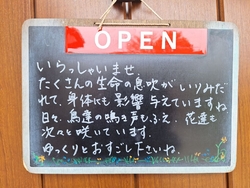 OPEN
いらっしゃいませ
たくさんの生命の息吹がいりみだ
れて、身体にも影響与えていますね
日々、鳥達の鳴き声もふえ、花達も
次々と咲いています。
ゆっくりとおすごし下さいね。